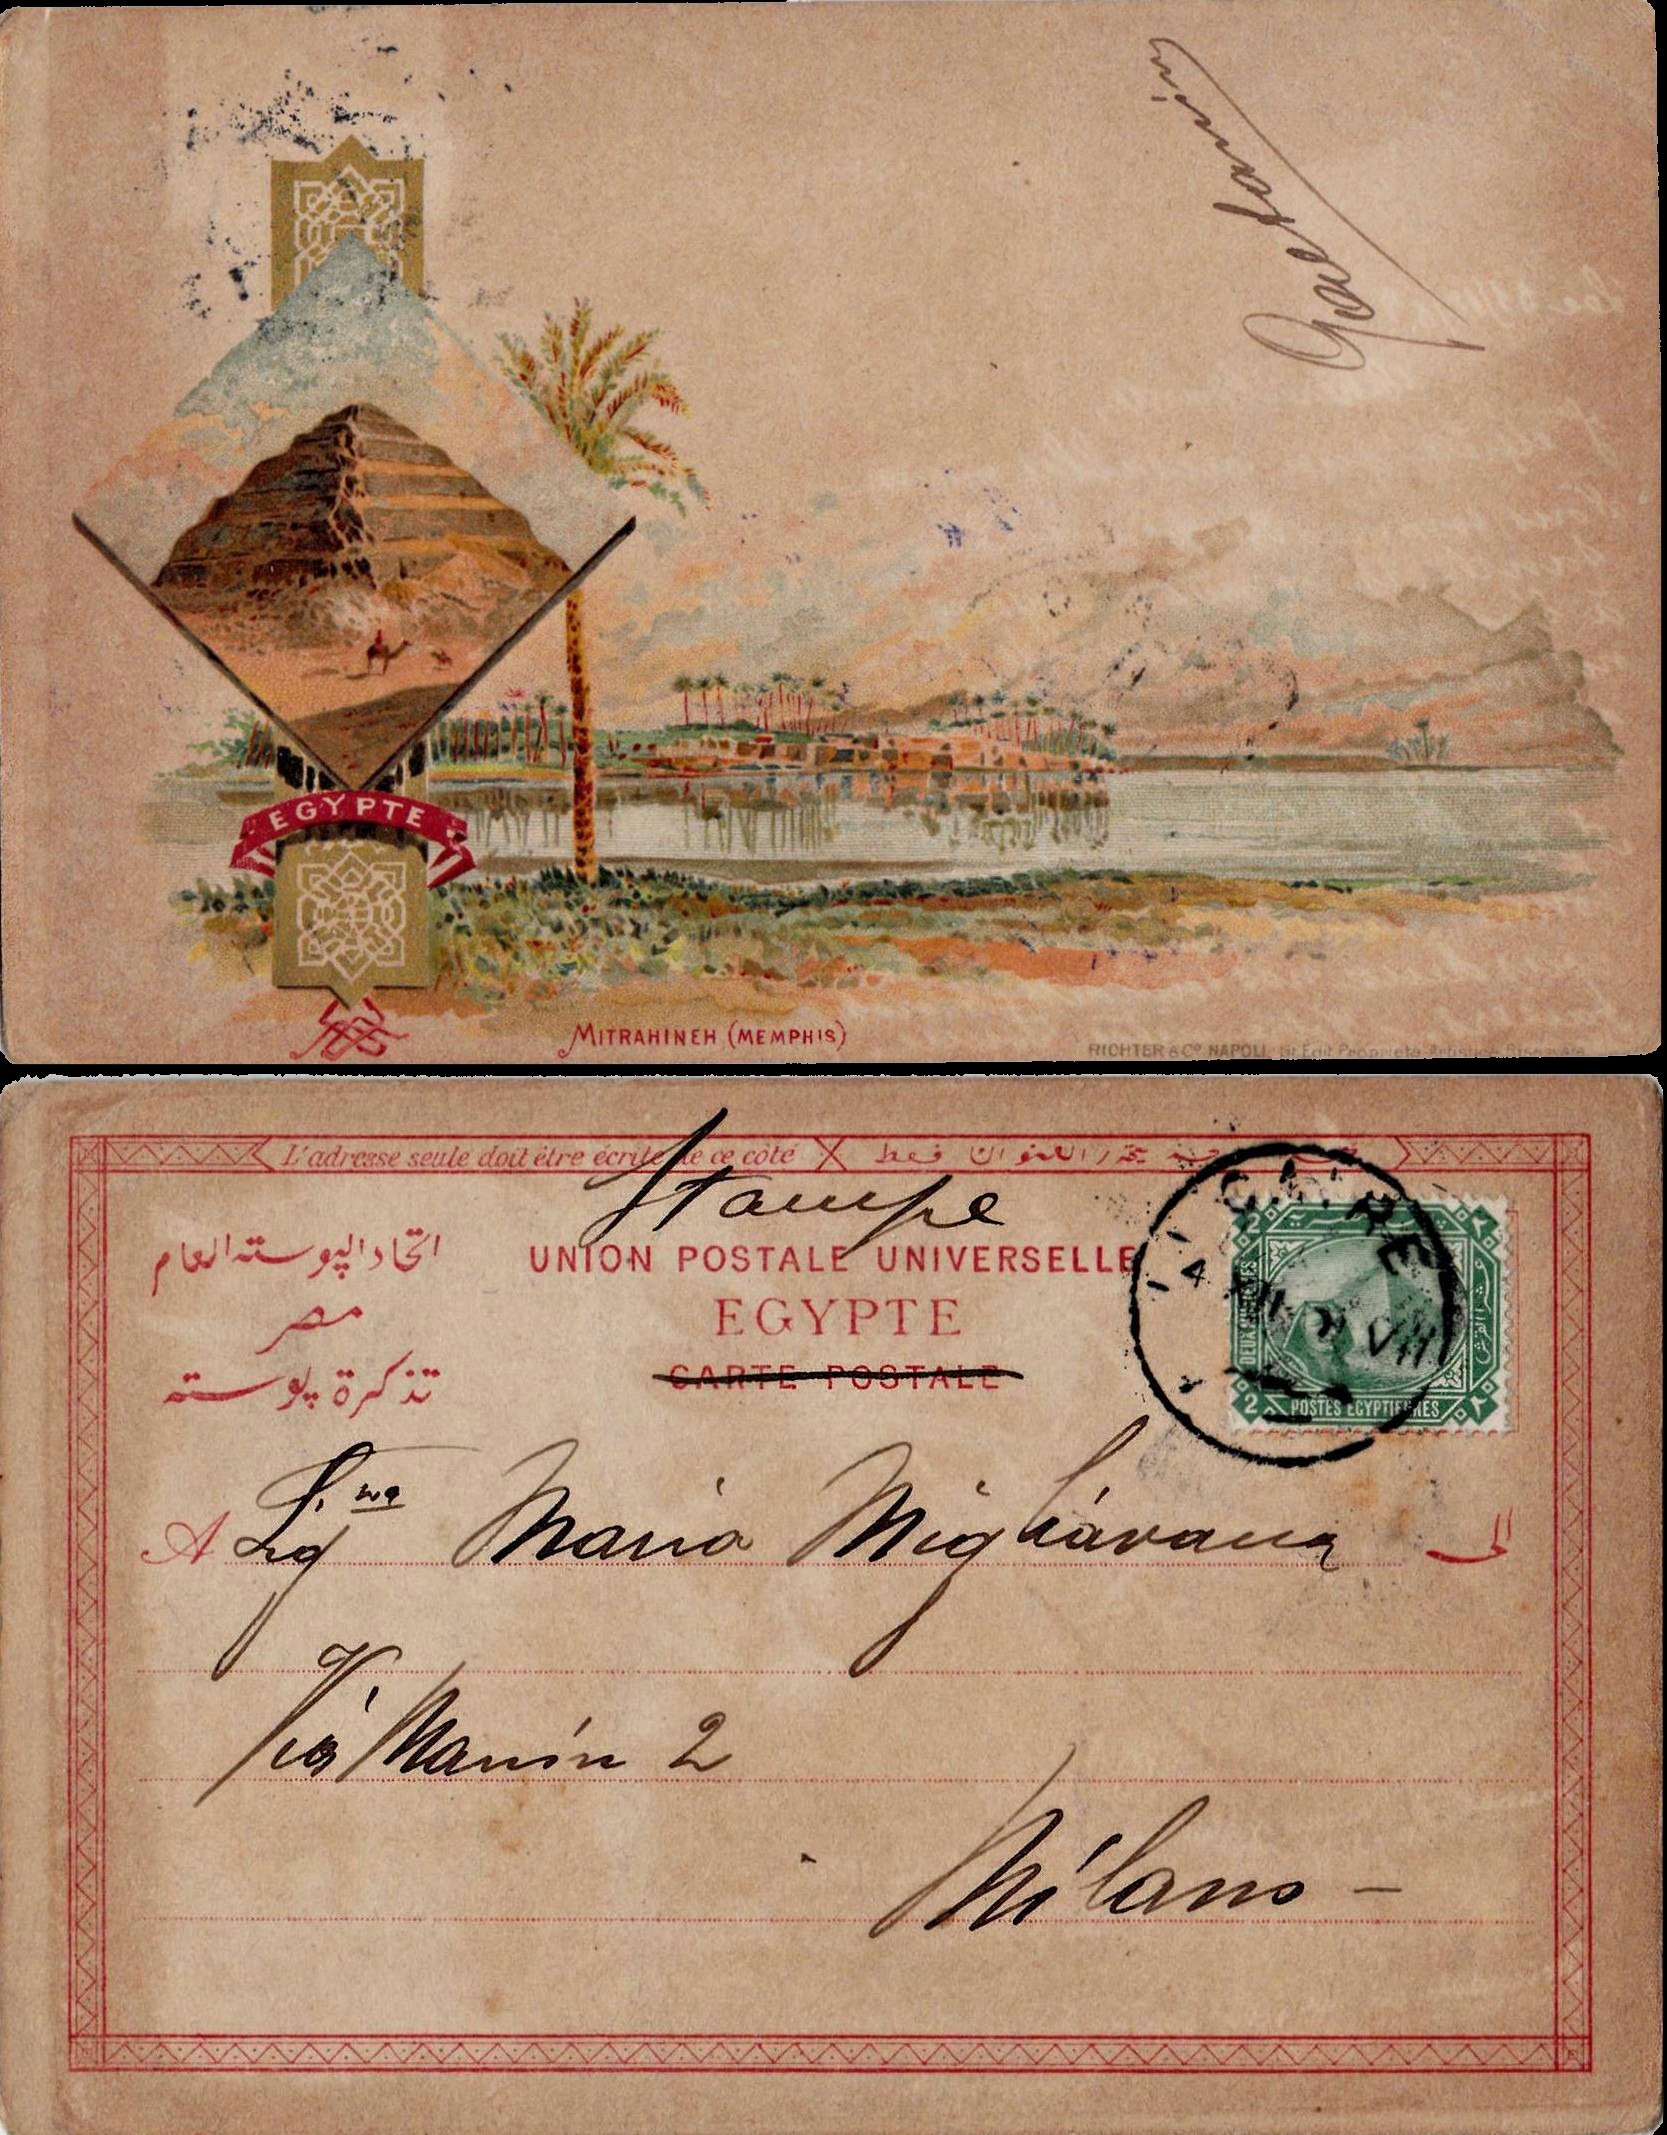 Gaetanin
EGYPTE
MITRAHINEH (MEMPHIS)
RICHTER & Co. NAPOLI
L'adresse seule doit être écrite de ce côté
Stampe
اتحاد البوسته العام
UNION POSTALE UNIVERSELLE
مصر
EGYPTE
تذكرة بوسته
CARTE POSTALE
CAIRE
4 XII
VIII
2
2
POSTES EGYPTIENNES
A Sigma Maria Migliavacca الى
Via Manin 2
Milano -